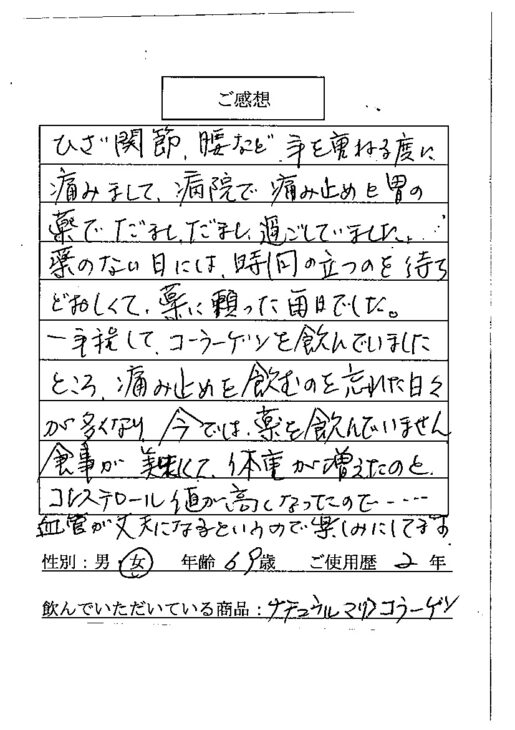 ご感想
ひざ関節、腰など、年を重ねる度に
痛みまして、病院で痛み止めと胃の
薬でだましだまし過ごしていました。
薬のない日には、時間の立つのを待ち
どおしくて、薬に頼った毎日でした。
一年程して、コーラーゲンを飲んでいました
ところ、痛み止めを飲むのを忘れた日々
が多くなり、今では、薬を飲んでいません
食事が美味くて、体重が増えたのと、
コレステロール値が高くなったので……
血管が丈夫になるというので楽しみにしてます
性別:男・女 年齢 69歳 ご使用歴 2 年
飲んでいただいている商品:ナチュラルマリンコラーゲン